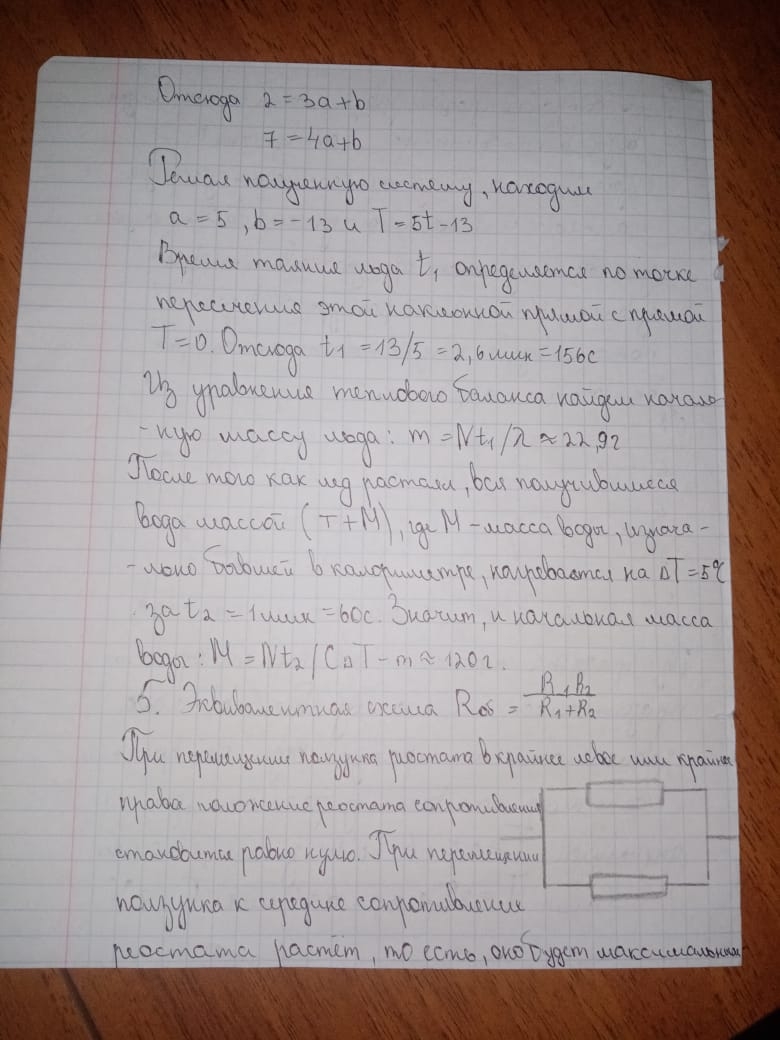 Отсюда 2 = 3a+b
7 = 4a+b
Решая полученную систему, находим
a = 5, b = -13 и T = 5t - 13
Время таяние льда t₁ определяется по точке
пересечения этой наклонной прямой с прямой
T=0. Отсюда t₁ = 13/5 = 2,6 мин = 156с
Из уравнения теплового баланса найдем началь
-ную массу льда: m = Nt₁/λ ≈ 22,9г
После того как лед растаял, вся получившиеся
вода массой (т+М), где М - масса воды, изнача-
-льно бывшей в калориметре, нагревается на ΔT = 5℃
за t₂ = 1 мин = 60с. Значит, и начальная масса
воды: M = Nt₂/CΔT - m ≈ 120г.
5. Эквивалентная схема Rоб = R₁R₂/R₁+R₂
При перемещении ползунка реостата в крайнее левое или крайне
права положение реостата сопротивления
становится равно нулю. При перемещении
ползунка к середине сопротивление
реостата растёт, то есть, оно будет максимальным